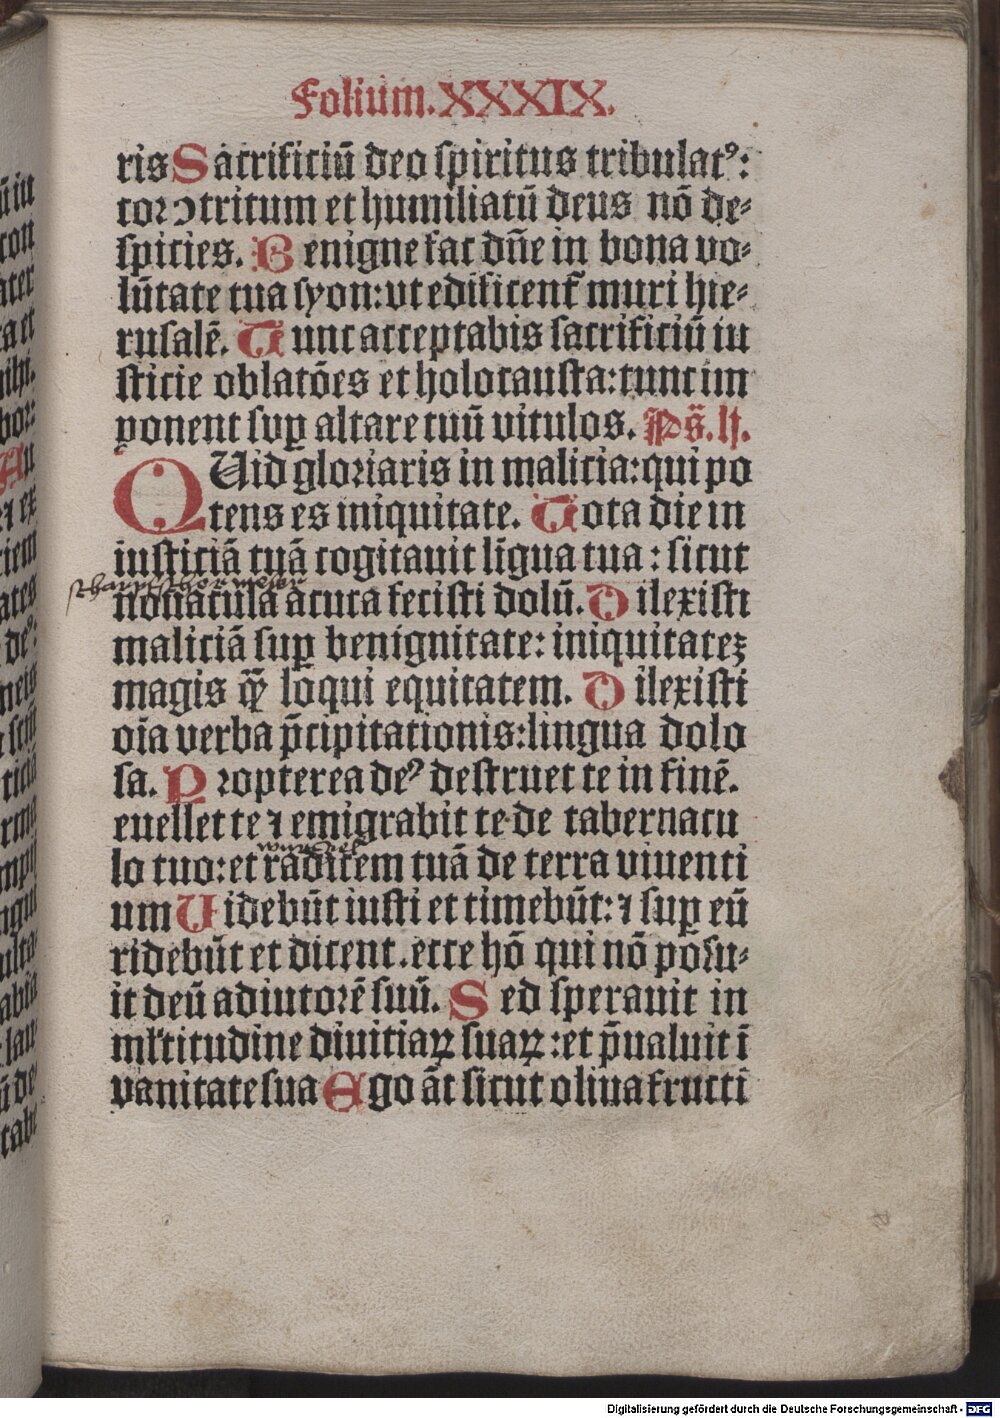 Folium. XXXIX.
ris Sacrificiū deo spiritus tribulatꝰ:
cor ɔtritum et humiliatū deus nō de⸗
spicies. Benigne fac dn̄e in bona vo⸗
lūtate tua syon: vt edificent̉ muri hie⸗
rusalē. Tunc acceptabis sacrificiū iu
sticie oblatōes et holocausta: tunc im
ponent suꝑ altare tuū vitulos. Ps̄. lj.
QUid gloriaris in malicia: qui po
tens es iniquitate. Tota die in
iusticiā tuā cogitauit līgua tua: sicut
scharpff schermesser
nouacula acuta fecisti dolū. Dilexisti
maliciā suꝑ benignitate: iniquitateꝫ
magis q̄ꝫ loqui equitatem. Dilexisti
oīa verba p̄cipitationis: lingua dolo
sa. Propterea deꝰ destruet te in finē.
euellet te ⁊ emigrabit te de tabernacu
wurczel
lo tuo: et radicem tuā de terra viuenti
um Uidebūt iusti et timebūt: ⁊ suꝑ eū
ridebūt et dicent. ecce hō qui nō posu⸗
it deū adiutorē suū. Sed sperauit in
ml̉titudine diuitiaꝝ suaꝝ: et p̄ualuit ī
vanitate sua Ego āt sicut oliua fructi
Digitalisierung gefördert durch die Deutsche Forschungsgemeinschaft - DFG